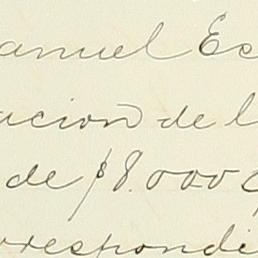 anuel Es
ación de l
de $8.000 q
rrespondi